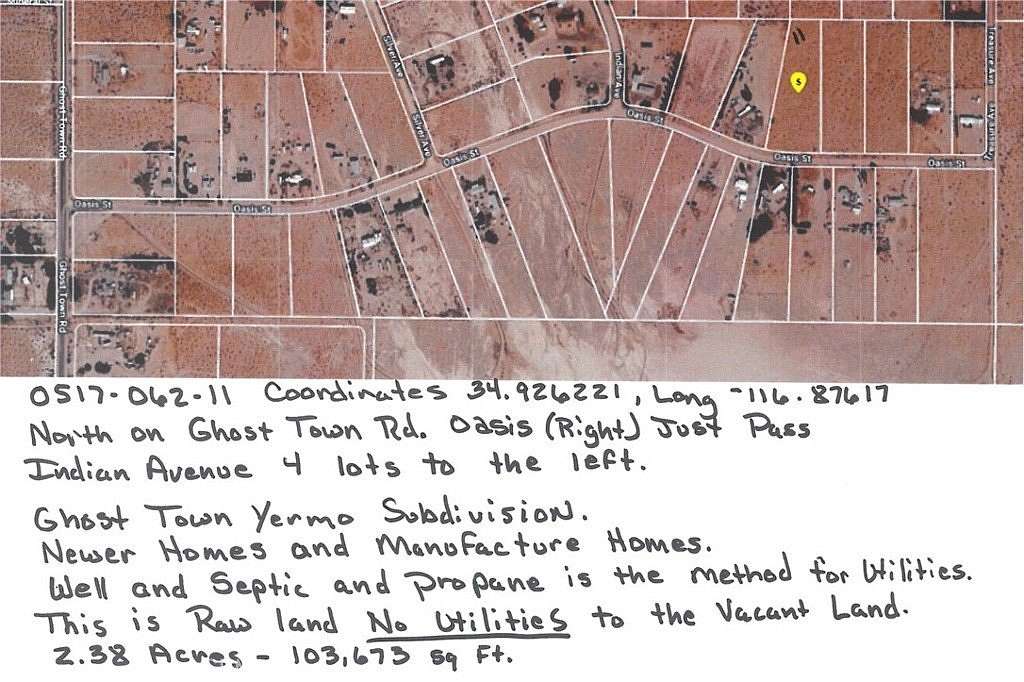 Mineral St
Silver Ave
Indian Ave
Treasure Ave
$
Ghost Town Rd
Silver Ave
Oasis St
Treasure Ave
Oasis St
Oasis St
Oasis St
Oasis St
Oasis St
Ghost Town Rd
0517-062-11 Coordinates 34.926221, Long -116.87617
North on Ghost Town Rd. Oasis (Right) Just Pass
Indian Avenue 4 lots to the left.
Ghost Town Yermo Subdivision.
Newer Homes and Manufacture Homes.
Well and Septic and propane is the method for Utilities.
This is Raw land No Utilities to the Vacant Land.
2.38 Acres - 103,673 sq Ft.